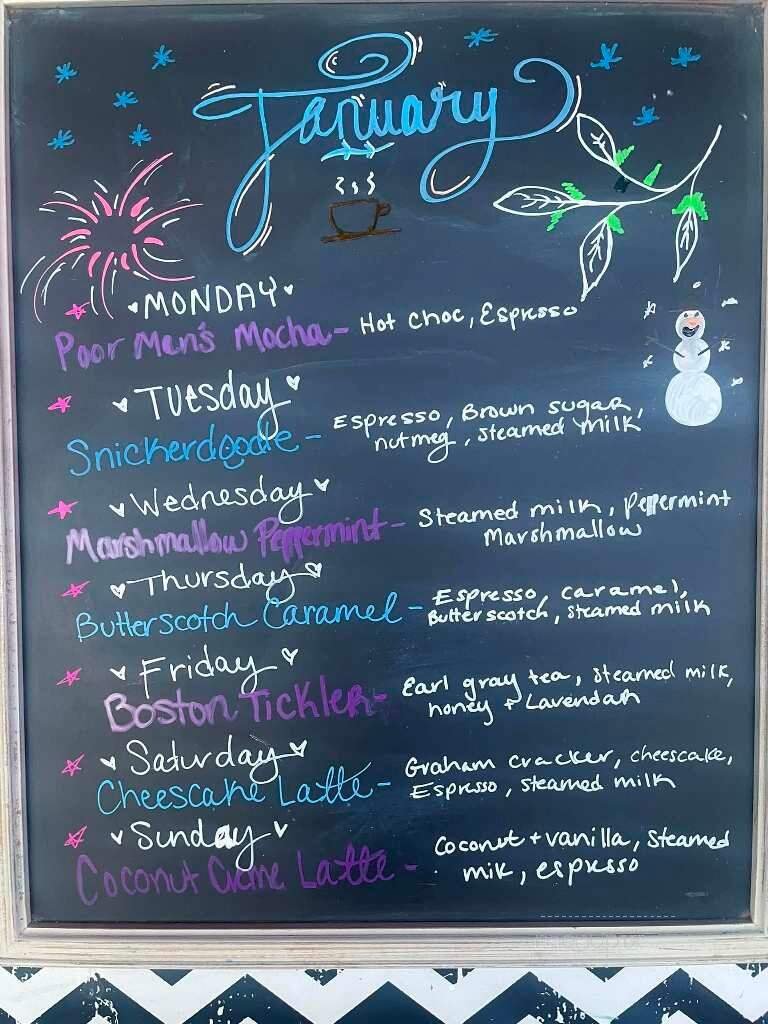 January
MONDAY
Poor Men's Mocha - Hot Choc, Espresso
Tuesday
Snickerdoodle - Espresso, Brown sugar,
nutmeg, steamed milk
Wednesday
Marshmallow Peppermint - Steamed milk, peppermint
Marshmallow
Thursday
Butterscotch Caramel - Espresso, caramel,
Butterscotch, steamed milk
Friday
Boston Tickler - Earl gray tea, steamed milk,
honey + Lavendar
Saturday
Cheescake Latte - Graham cracker, cheescake,
Espresso, steamed milk
Sunday
Coconut Crème Latte - Coconut + vanilla, steamed
mik, espresso